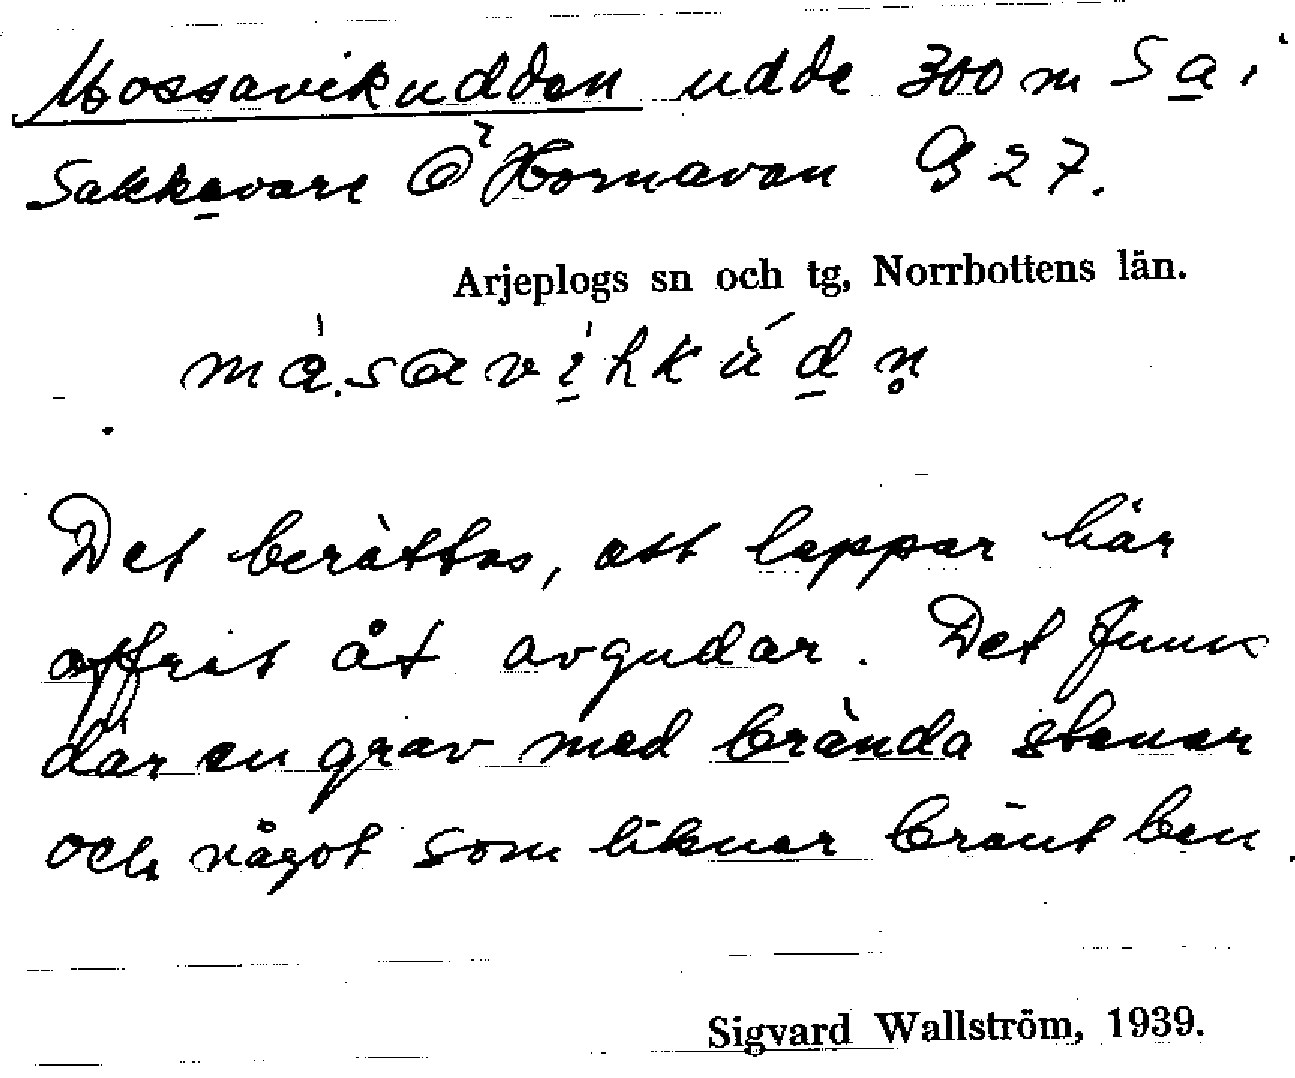 Mossavikudden udde 300 m S a i
Sakkavare Ö Hornavan G 27.
Arjeplogs sn och tg, Norrbottens län.
Det berättas, att lappar här
offrat åt avgudar. Det finns
där en grav med brända stenar
och något som liknar bränt ben.
Sigvard Wallström, 1939.